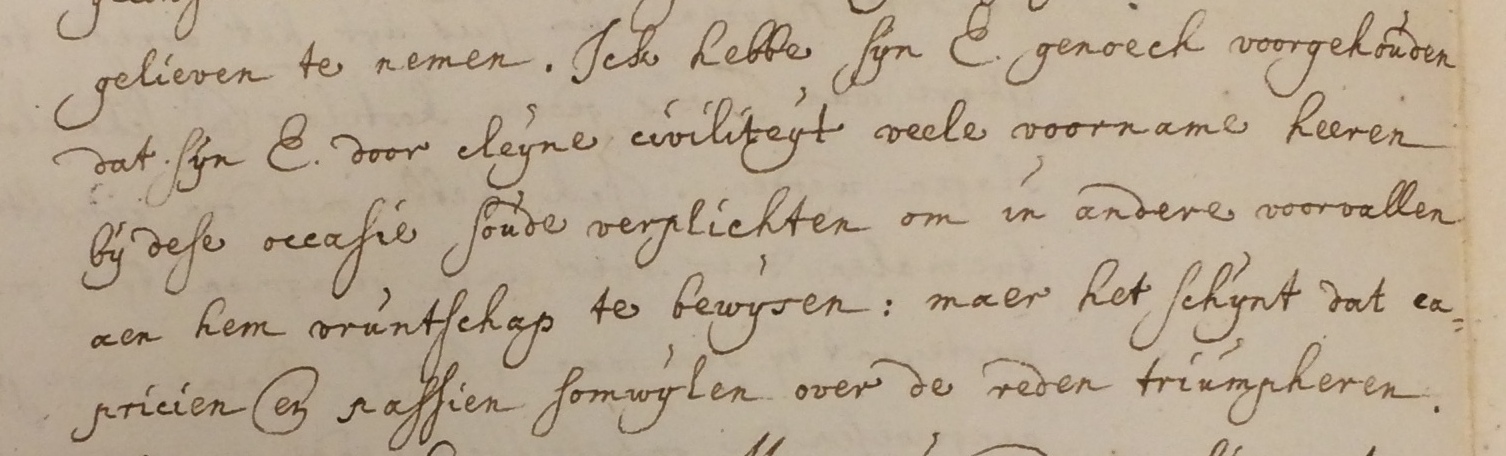 gelieven te nemen. Ick hebbe sijn E. genoech voorgehouden
dat sijn E. door cleijne civiliteijt veele voorname heeren
bij dese occasie soude verplichten om in andere voorvallen
aen hem vruntschap te bewijsen: maer het schijnt dat ca=
pricien en passien somwijlen over de reden triumpheren.